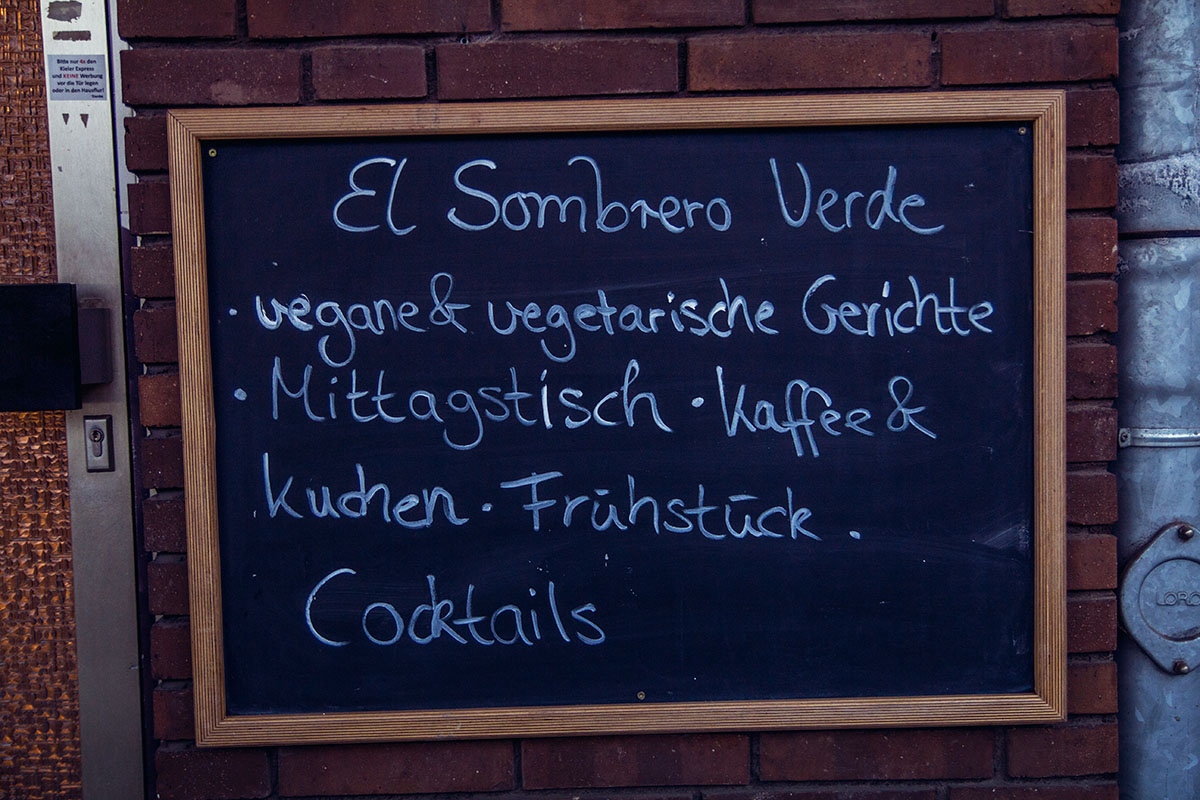 Bitte nur 4x den
Kieler Express
und KEINE Werbung
vor die Tür legen
oder in den Hausflur!
Danke
El Sombrero Verde
· vegane & vegetarische Gerichte
· Mittagstisch · Kaffee &
Kuchen · Frühstück ·
Cocktails